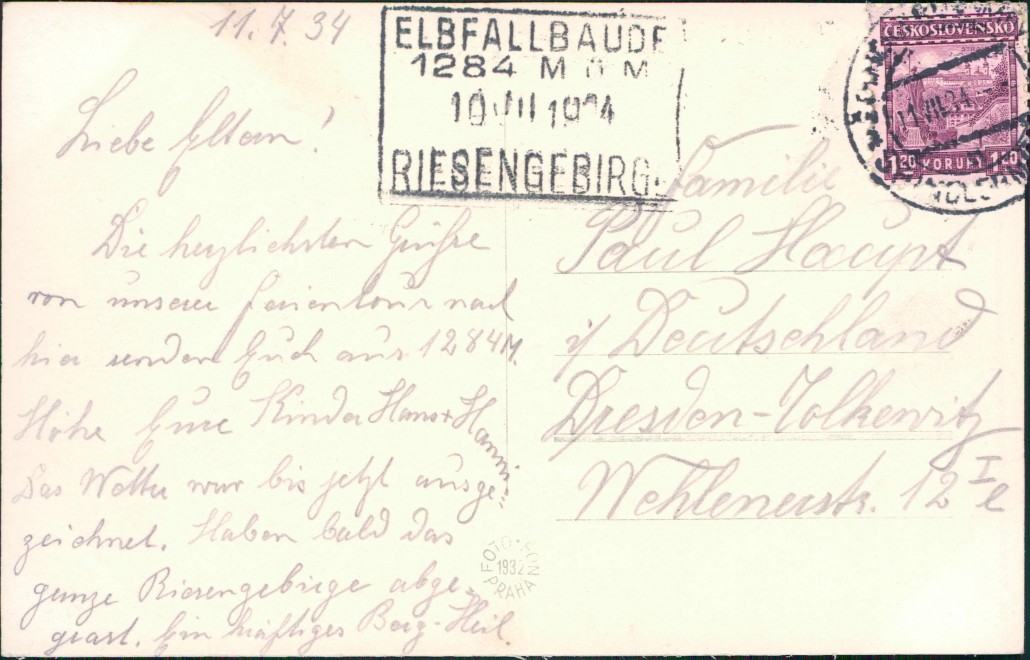 11.7.34
ELBFALLBAUDE
1284 M ü M
10 VII 1934
RIESENGEBIRG.
ČESKOSLOVENSKO
11.VII.34
1.20 KORUN 1.20
Liebe Eltern!
Die herzlichsten Grüsse
von unserer Ferientour nach
hier senden Euch aus 1284 M.
Höhe Eure Kinder Hans + Hanni
Das Wetter war bis jetzt ausge
zeichnet. Haben bald das
ganze Riesengebirge abge-
grast. Ein kräftiges Berg-Heil.
Familie
Paul Haupt
i/ Deutschland
Dresden-Tolkewitz
Wehlenerstr. 12 I e
FOTO-FON
1932
PRAHA